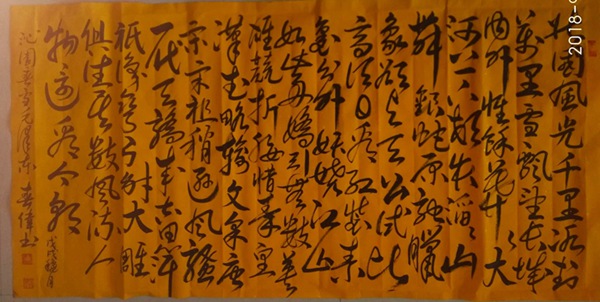 北国風光千里冰封
萬里雪飘望长城
内外惟餘莽々大
河上下頓失滔滔山
舞銀蛇原馳蠟
象欲与天公试比
高须日看红装素
裹分外妖娆江山
如此多嬌引無数英
雄競折腰惜秦皇
漢武略輸文采唐
宗宋祖稍遜风騷
一代天驕成吉思汗
祇識弯弓射大雕
俱往矣数风流人
物还看今朝
沁园春雪毛泽东 春偉书
戊戌 月
2018